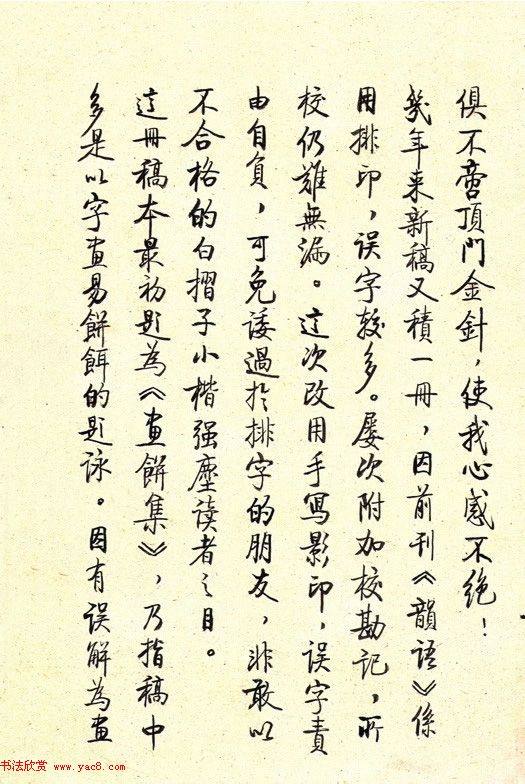 俱不啻頂門金針，使我心感不絕！
幾年来新稿又積一冊，因前刊《韻語》係
用排印，误字較多。屡次附加校勘記，所
校仍難無漏。这次改用手寫影印，误字責
由自負，可免諉過於排字的朋友，非敢以
不合格的白摺子小楷强塵读者之目。
这冊稿本最初題為《畫餅集》，乃指稿中
多是以字畫易餅餌的題詠。因有误解為畫
书法欣赏 www.yac8.com